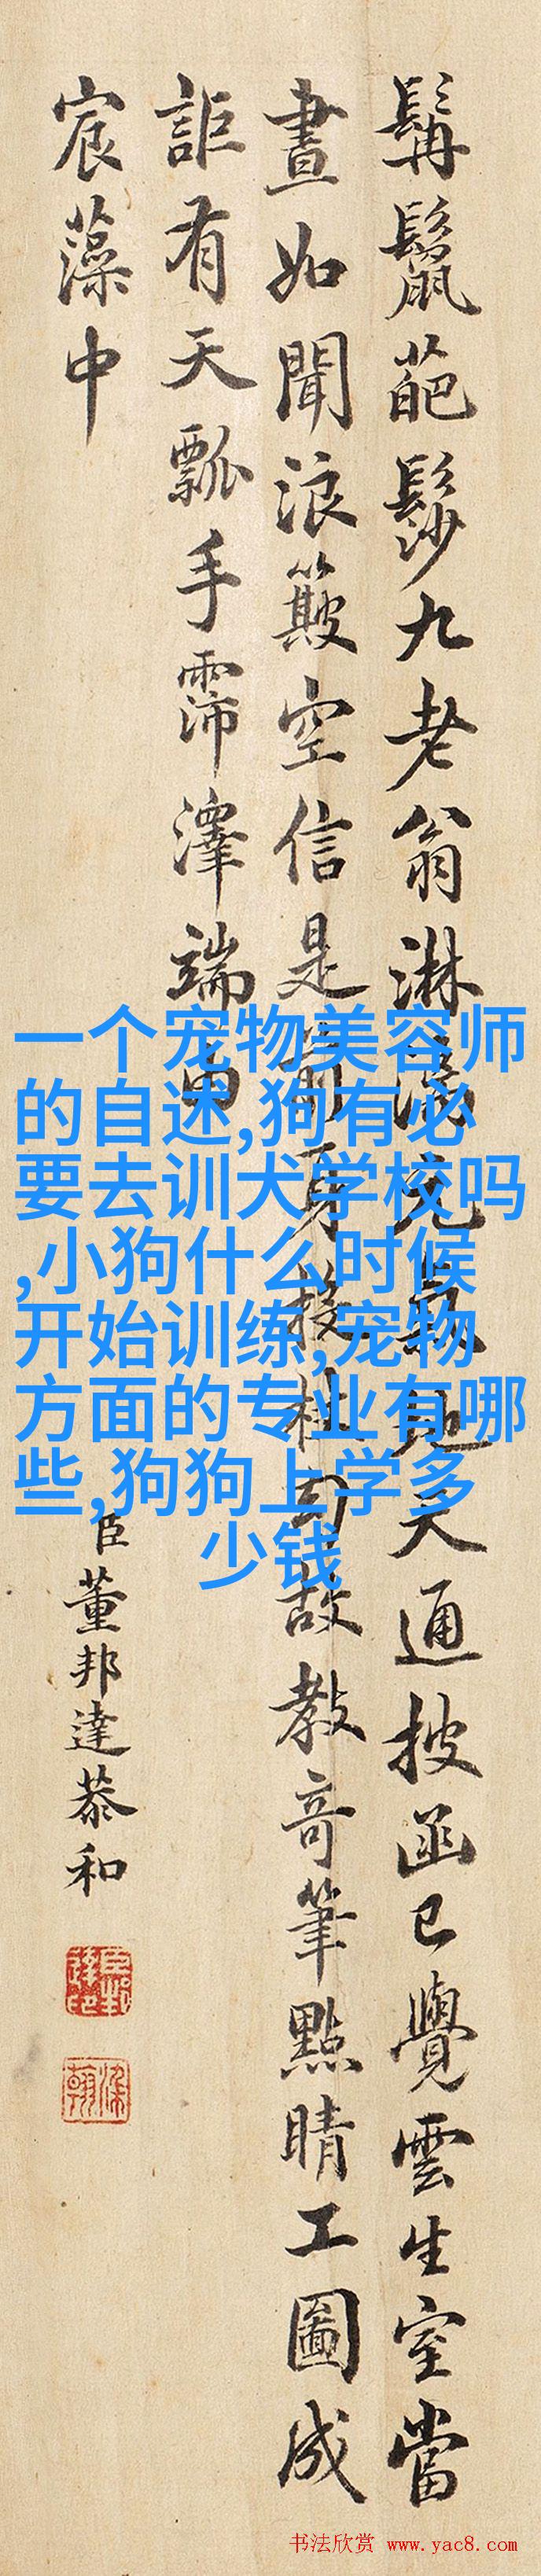 髯鬣葩髿九老翁淋漓元氣地天通披函已覺雲生室當
晝如聞浪簸空信是前身司故教奇筆點晴工圖成
詎有天瓢手霈澤端
宸藻中
臣董邦達恭和
一个宠物美容师
的自述,狗有必
要去训犬学校吗
,小狗什么时候
开始训练,宠物
方面的专业有哪
些,狗狗上学多
少钱
书法欣赏 www.yac8.com